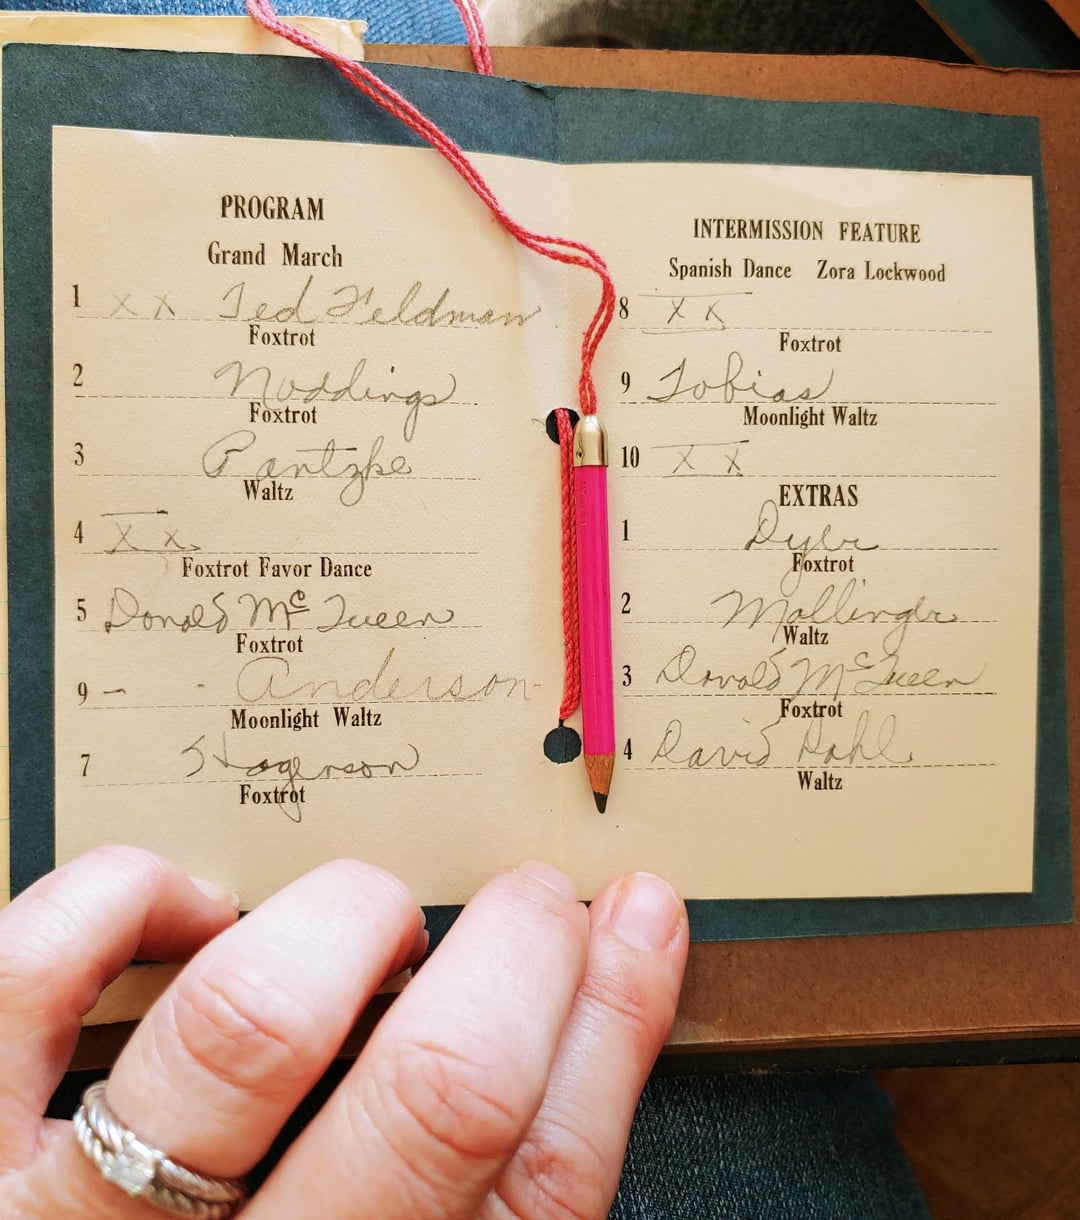 PROGRAM
Grand March
1 X X Ted Feldman
Foxtrot
2 Noddings
Foxtrot
3 Pantzke
Waltz
4 X X
Foxtrot Favor Dance
5 Donald McQueen
Foxtrot
9 - - Anderson -
Moonlight Waltz
7 Stagerson
Foxtrot
INTERMISSION FEATURE
Spanish Dance Zora Lockwood
8 X X
Foxtrot
9 Tobias
Moonlight Waltz
10 X X
EXTRAS
1 Dyer
Foxtrot
2 Mollinger
Waltz
3 Donald McQueen
Foxtrot
4 David Dahl
Waltz